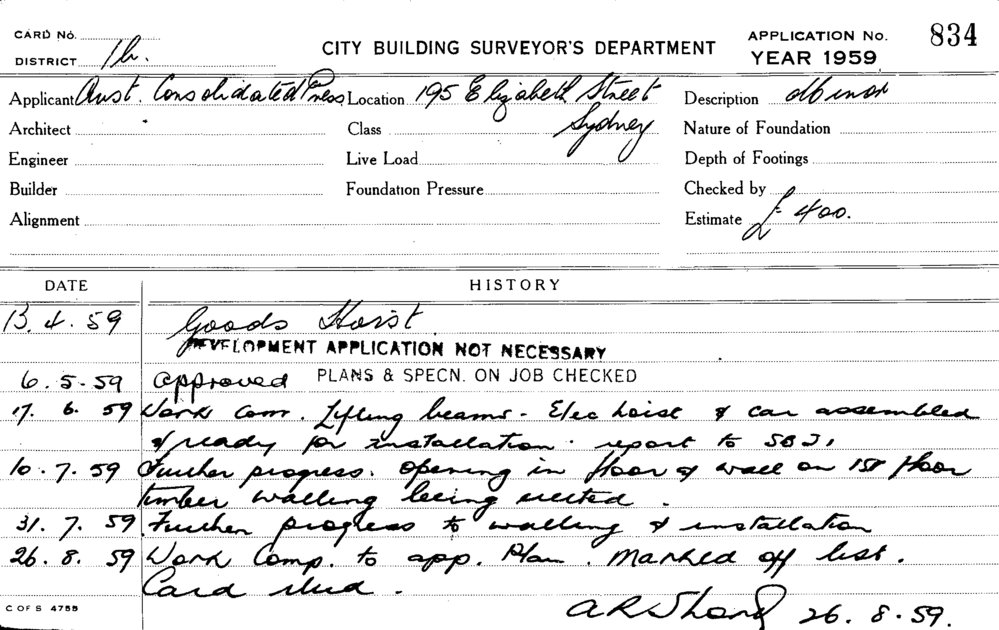 CARD No.
CITY BUILDING SURVEYOR'S DEPARTMENT
APPLICATION No. 834
DISTRICT
YEAR 1959
Applicant Aust. Consolidated Press Location 195 Elizabeth Street Sydney Description
Architect Class Nature of Foundation
Engineer Live Load Depth of Footings
Builder Foundation Pressure Checked by
Alignment Estimate £ 400.
DATE HISTORY
13. 4. 59 Goods Hoist.
DEVELOPMENT APPLICATION NOT NECESSARY
6. 5. 59 Approved PLANS & SPECN. ON JOB CHECKED
17. 6. 59 Work Com. Lifting beams - Elec hoist & car assembled
& ready for installation. report to SBI.
10. 7. 59 Further progress. Opening in floor & wall on 1st floor
timber walling being erected.
31. 7. 59 Further progress to walling & installation
26. 8. 59 Work Comp. to app. Plan. Marked off list.
Card
26. 8. 59.
C OF S 4755